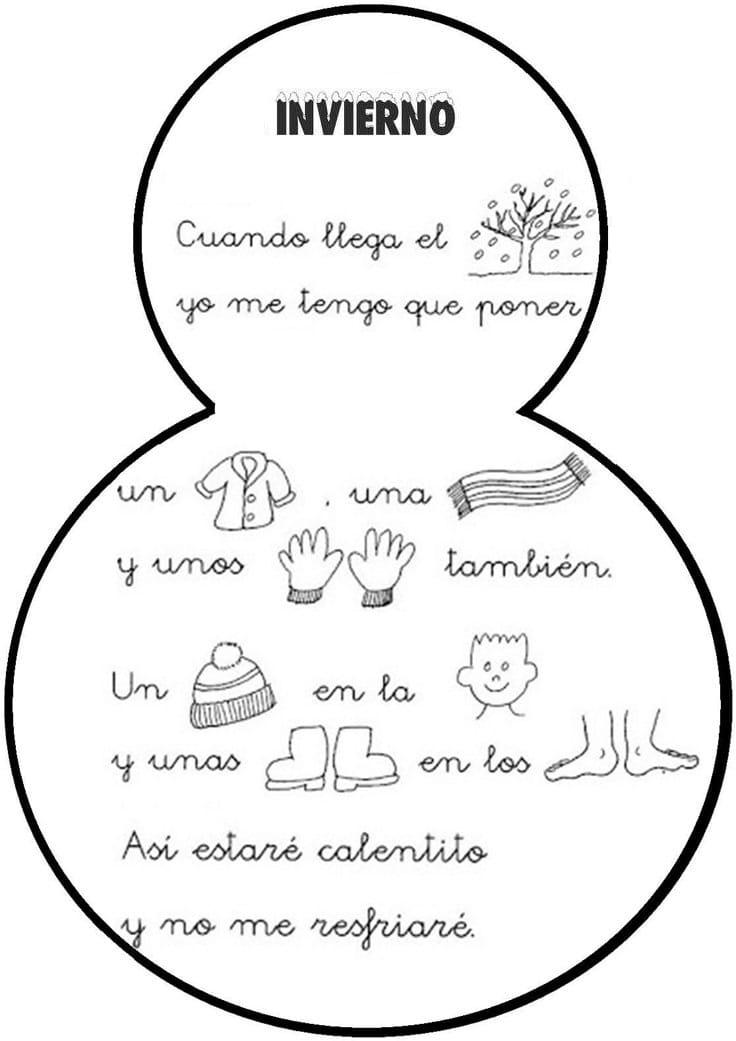 INVIERNO
Cuando llega el
yo me tengo que poner
un , una
y unos también.
Un en la
y unas en los
Así estaré calentito
y no me resfriaré.